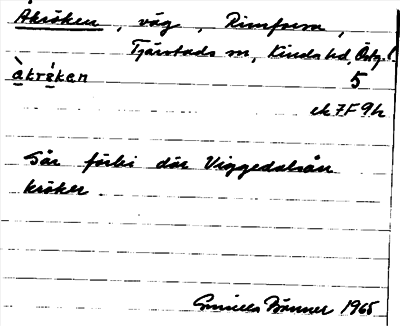 Åkröken, väg, Rimforsa,
Tjärstads sn, Kinda hd, Östg.
åkröken 5
ek 7F 9h
Går förbi där Viggedalsån
kröker.
Gunilla Brånner 1965